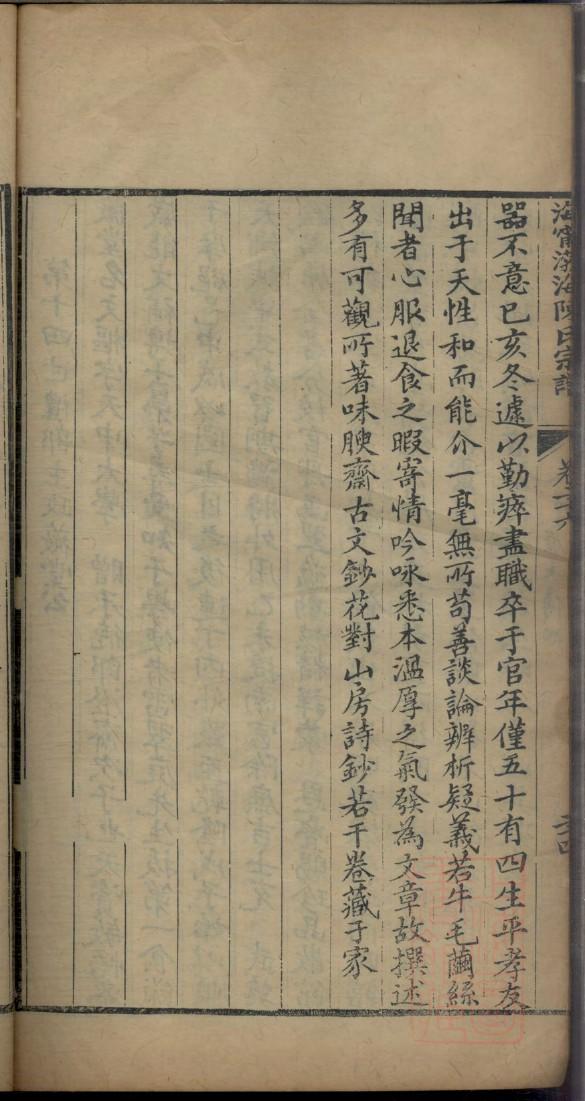 海寧渤海陳氏宗譜
卷二六
二四
器不意已亥冬遽以勤瘁盡職卒于官年僅五十有四生平孝友
出于天性和而能介一毫無所苟善談論辨析疑義若牛毛繭絲
聞者心服退食之暇寄情吟咏悉本溫厚之氣發為文章故撰述
多有可觀所著味腴齋古文鈔花對山房詩鈔若干卷藏于家